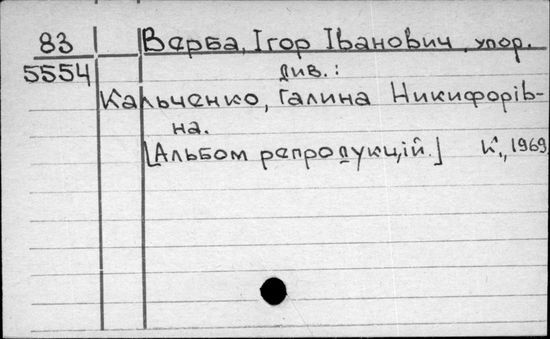 83 Верба, Ігор Іванович, упор.
5554 див.:
Кальченко, Галина Никифорів-
на.
[Альбом репродукцій.] К., 1969